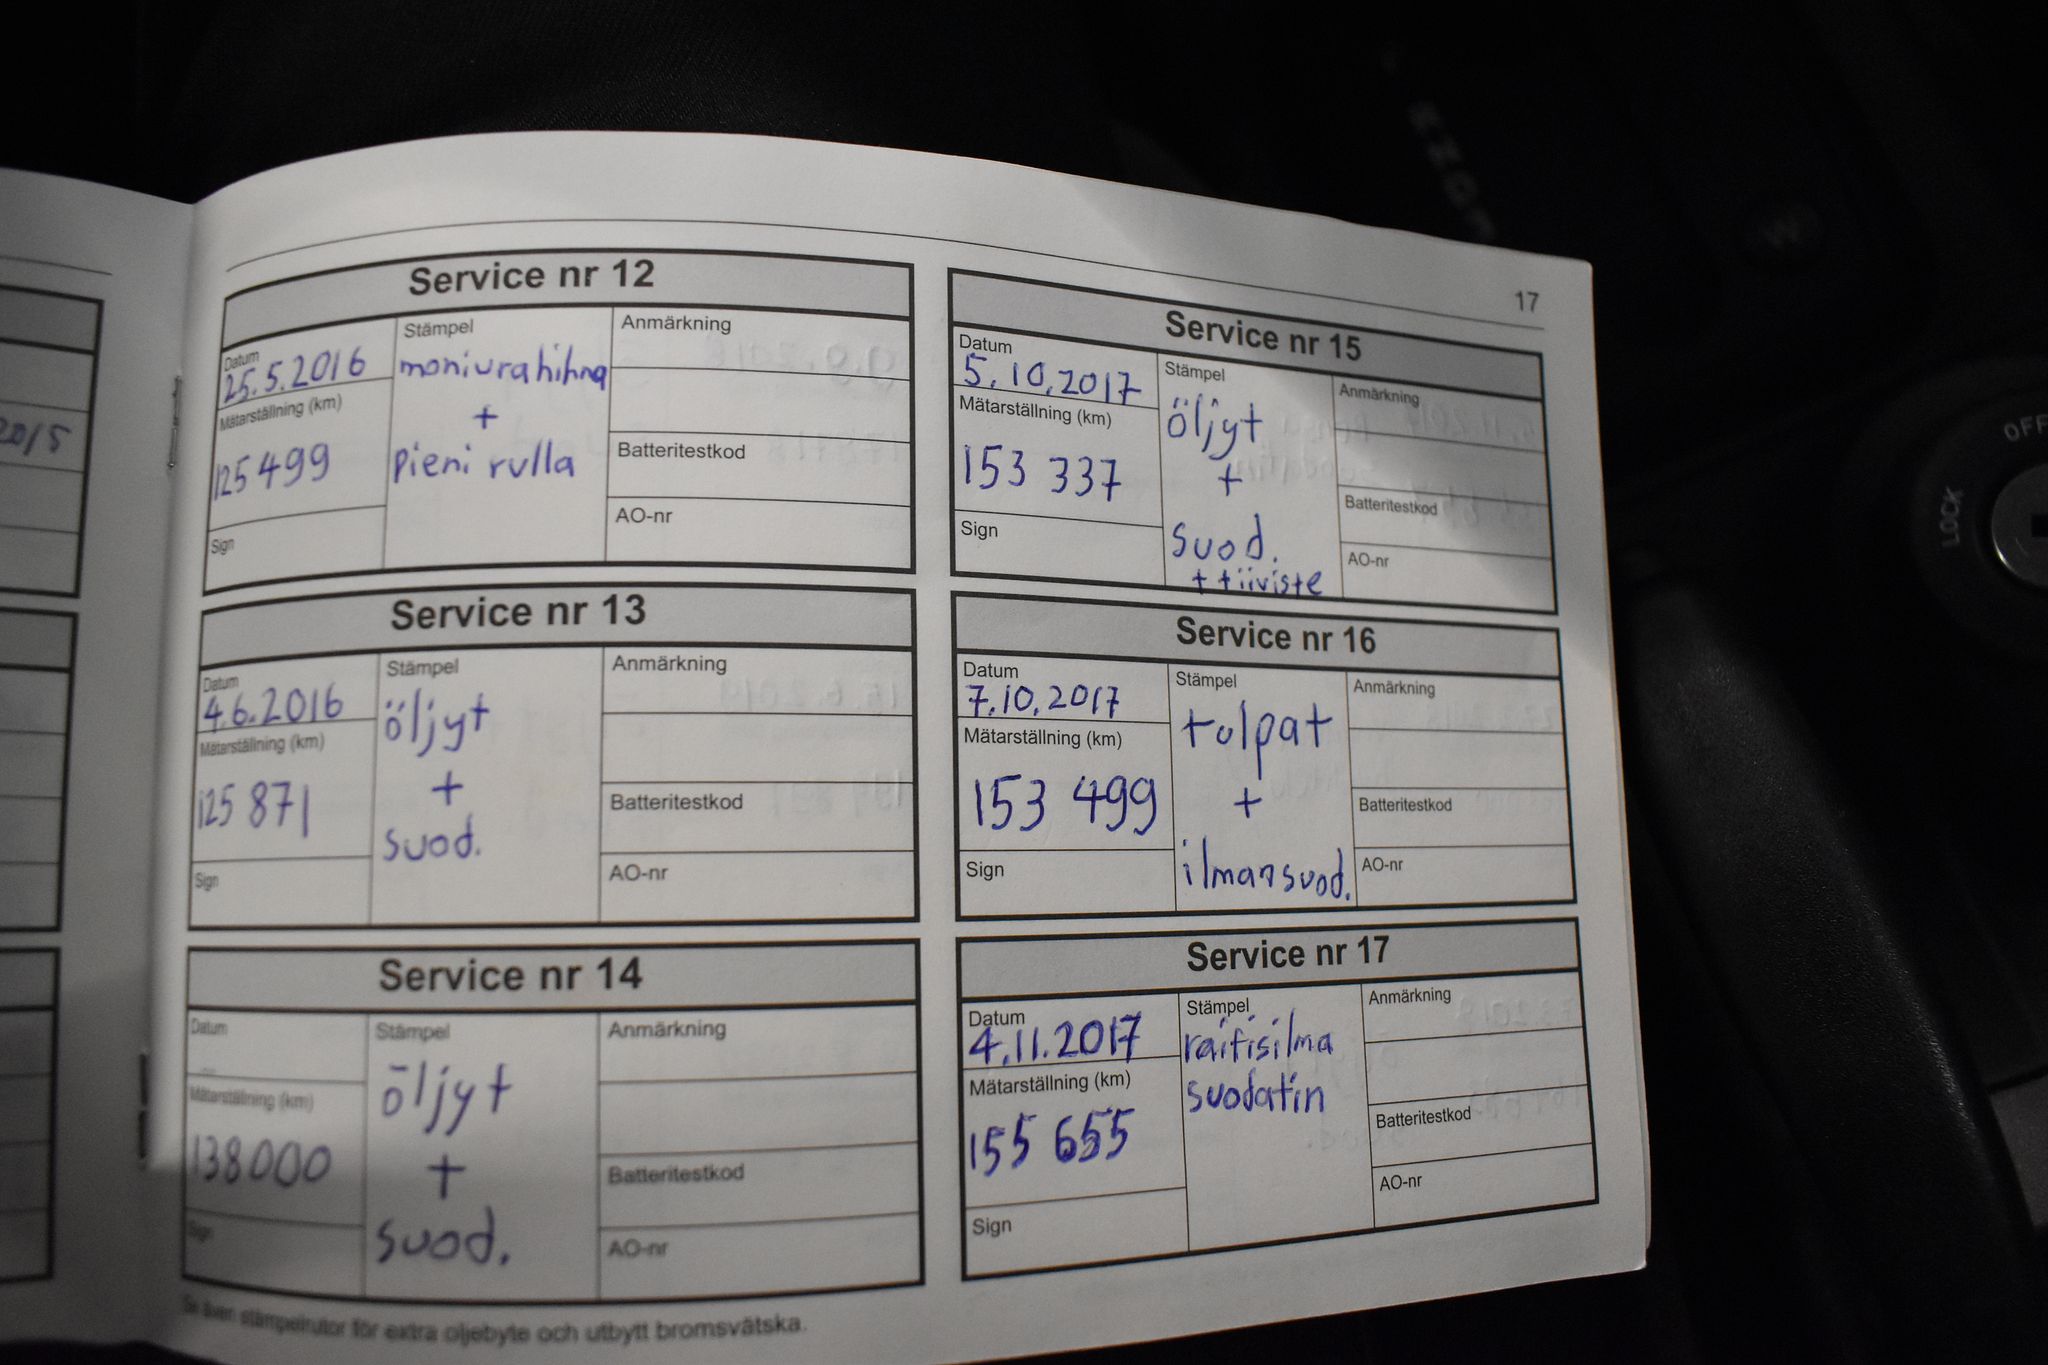 2015
17
Service nr 12
Datum
25.5.2016
Mätarställning (km)
125499
Sign
Stämpel
moniurahihna
+
pieni rulla
Anmärkning
Batteritestkod
AO-nr
Service nr 13
Datum
4.6.2016
Mätarställning (km)
125 871
Sign
Stämpel
öljyt
+
suod.
Anmärkning
Batteritestkod
AO-nr
Service nr 14
Datum
Mätarställning (km)
138000
Sign
Stämpel
öljyt
+
suod.
Anmärkning
Batteritestkod
AO-nr
Service nr 15
Datum
5.10.2017
Mätarställning (km)
153 337
Sign
Stämpel
öljyt
+
suod.
+ tiiviste
Anmärkning
Batteritestkod
AO-nr
Service nr 16
Datum
7.10.2017
Mätarställning (km)
153 499
Sign
Stämpel
tulpat
+
ilmansuod.
Anmärkning
Batteritestkod
AO-nr
Service nr 17
Datum
4.11.2017
Mätarställning (km)
155 655
Sign
Stämpel
raitisilma
suodatin
Anmärkning
Batteritestkod
AO-nr
Se även stämpelrutor för extra oljebyte och utbytt bromsvätska.
LOCK
OFF
W